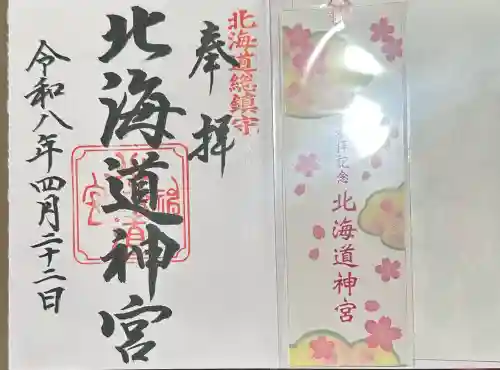 北海道總鎮守
奉拝
北海道神宮
令和八年四月二十二日
拝記念
北海道神宮